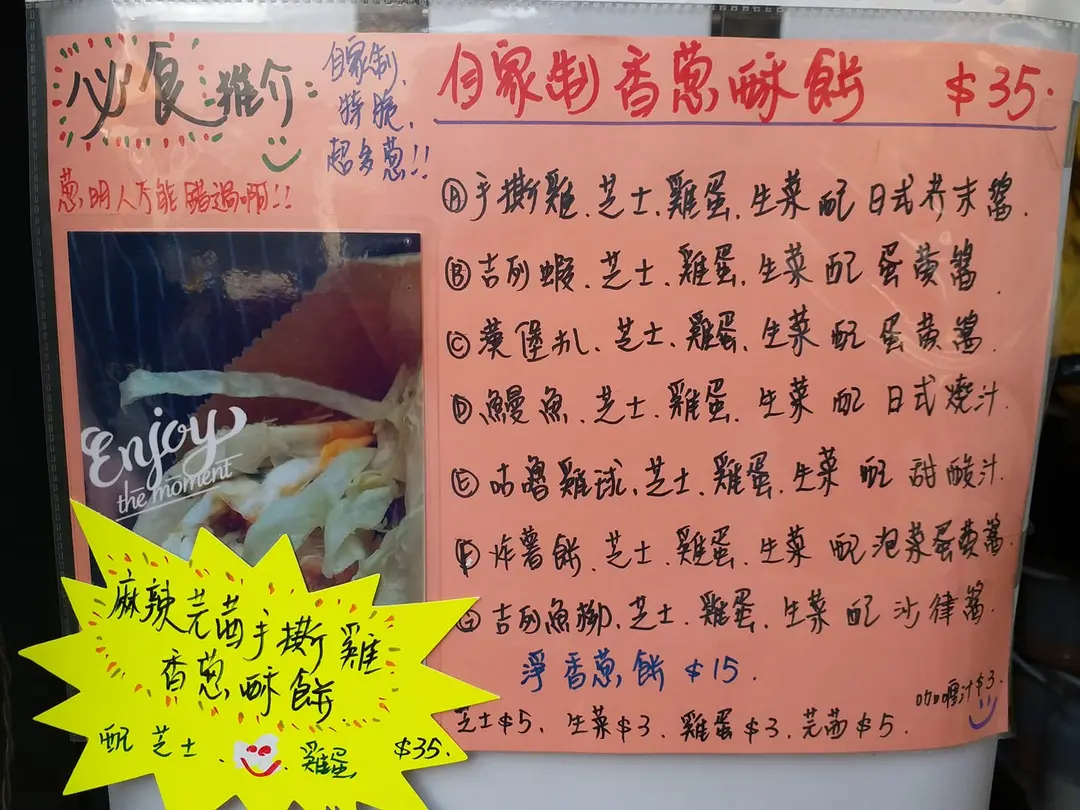 必食推介:
自家制,
特脆,
超多蔥!!
蔥明人冇能錯過啊!!
自家制香蔥酥餅 $35.
Ⓐ手撕雞.芝士.雞蛋.生菜配日式芥末醬.
Ⓑ吉列蝦.芝士.雞蛋.生菜配蛋黄醬.
Ⓒ漢堡扒.芝士.雞蛋.生菜配蛋黄醬.
Ⓓ鰻魚.芝士.雞蛋.生菜配日式燒汁.
Ⓔ咕嚕雞球.芝士.雞蛋.生菜配甜酸汁.
Ⓕ炸薯餅.芝士.雞蛋.生菜配泡菜蛋黄醬.
Ⓖ吉列魚柳.芝士.雞蛋.生菜配沙律醬.
淨香蔥餅 $15.
咖喱汁$3.
芝士$5. 生菜$3. 雞蛋$3. 芫茜$5.
Enjoy
the moment
麻辣芫茜手撕雞
香蔥酥餅.
配芝士..雞蛋 $35.